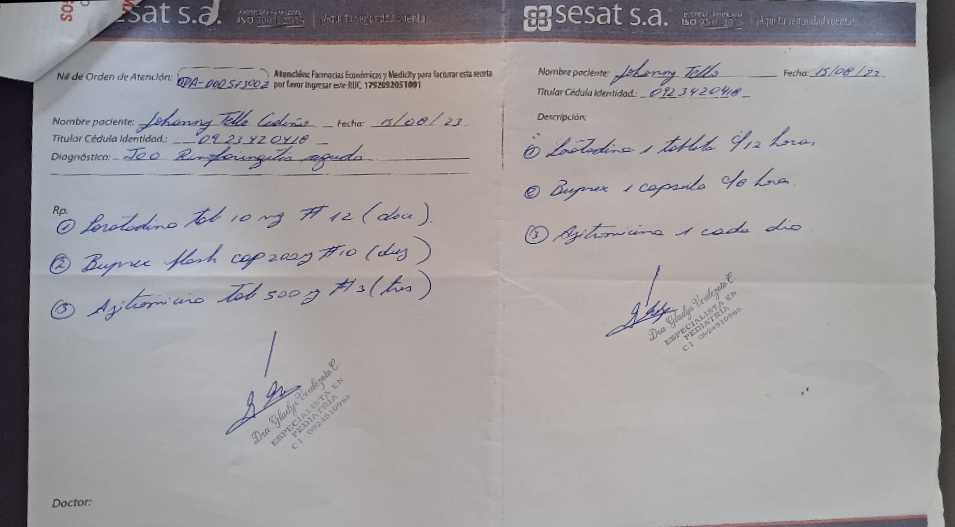 SOS
sesat s.a.
ISO 9001:2015
Nº de Orden de Atención: ODA-002573902
Atención: Farmacias Económicas y Medicity para facturar esta receta
por favor ingresar este RUC, 1792692051001
Nombre paciente: Johanny Tello Cedeño Fecha: 15/08/23
Titular Cédula Identidad.: 0923420418
Diagnóstico: J00 Rinofaringitis aguda
Rp.
① Loratadina tab 10 mg # 12 (doce).
② Buprex flash cap 200 g #10 (diez)
③ Azitromicina Tab 500 g # 3 (tres)
Dra. Gladys C.
ESPECIALISTA EN
PEDIATRÍA
Doctor:
sesat s.a.
Nombre paciente: Johanny Tello Fecha: 15/08/22
Titular Cédula Identidad.: 0923420418
Descripción:
① Loratadina 1 tableta c/12 horas.
② Buprex 1 capsula c/8 hora
③ Azitromicina 1 cada dia
Dra. Gladys C
ESPECIALISTA EN
PEDIATRÍA